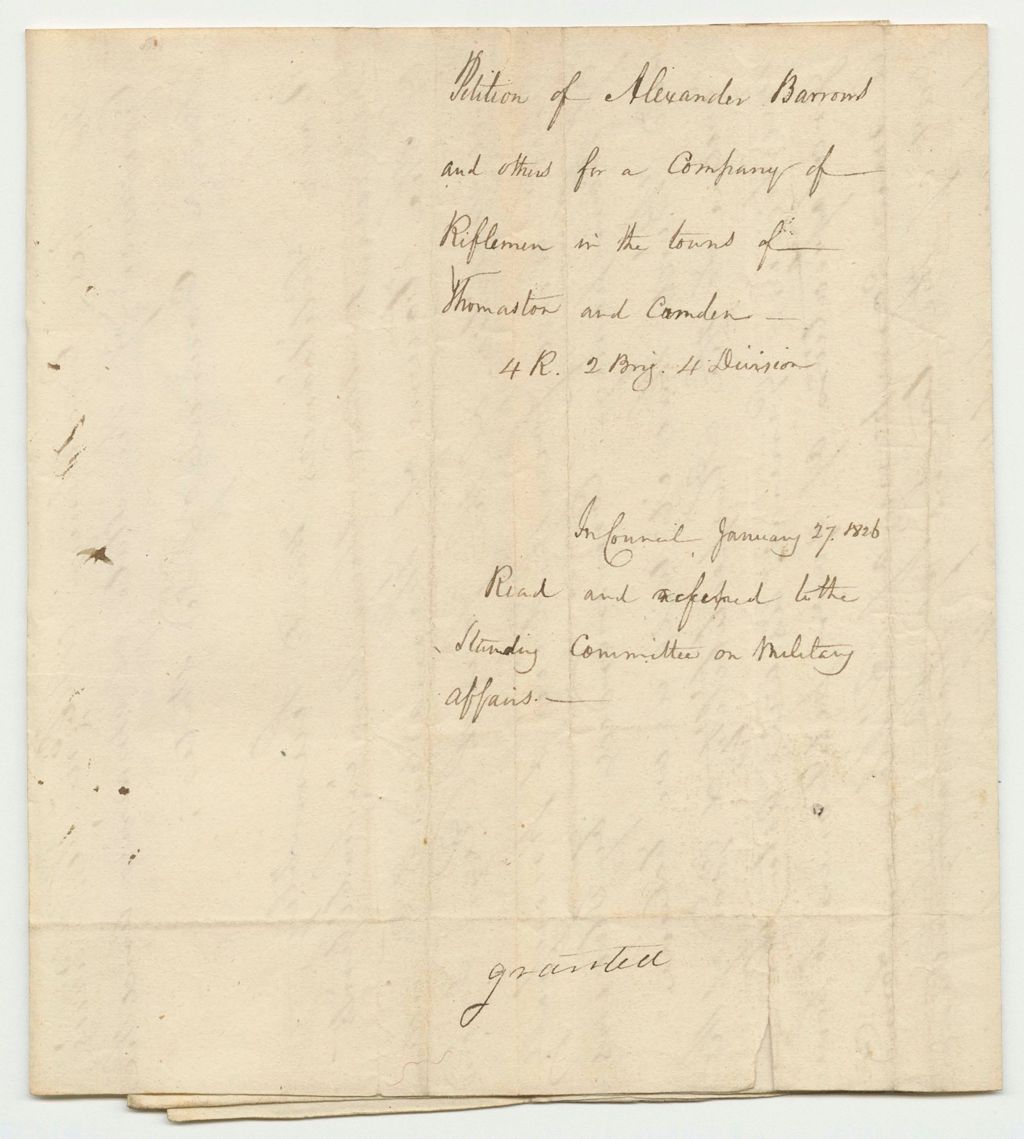 Petition of Alexander Barrows
and others for a Company of
Riflemen in the towns of
Thomaston and Camden —
4 R. 2 Brig. 4 Division
In Council January 27. 1826
Read and referred to the
Standing Committee on Military
affairs. —
granted